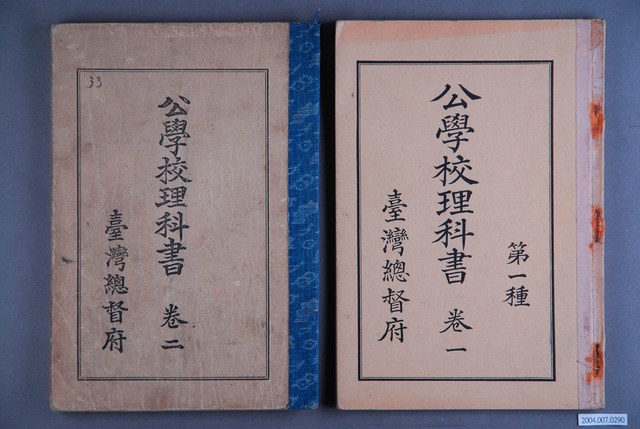 33
公學校理科書 卷二
臺灣總督府
第一種
公學校理科書 卷一
臺灣總督府
2004.007.0290